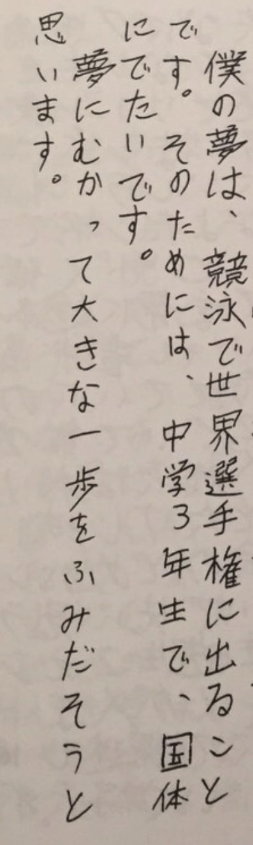 僕の夢は、競泳で世界選手権に出ること
です。そのためには、中学3年生で、国体
にでたいです。
夢にむかって大きな一歩をふみだそうと
思います。